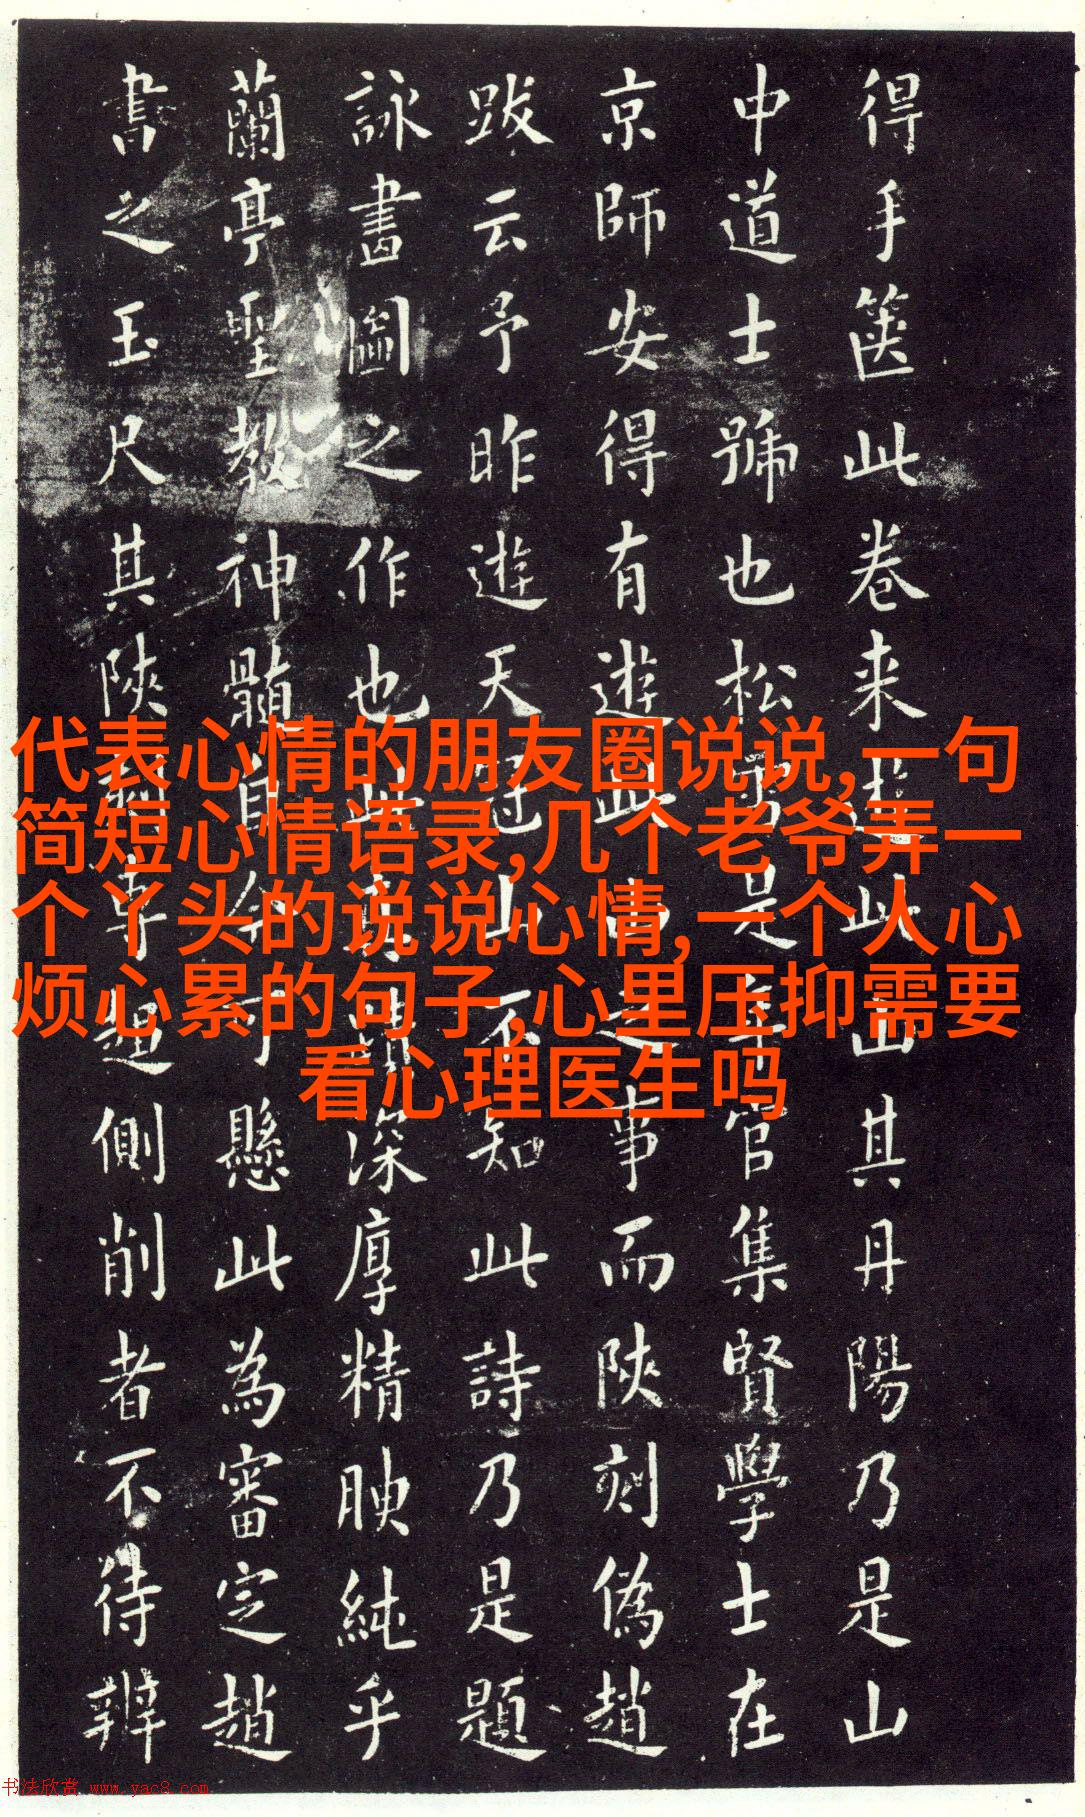 得手箧此卷来其丹陽乃是山
中道士號也松是官集賢學士在
京師安得有遊事而陝刻偽趙
跋云予昨遊天冠山不知此詩乃是題
詠書圖之作也深厚精腴純乎
蘭亭聖教神髓自懸此為審定趙
書之玉尺其陝側削者不待辨
代表心情的朋友圈说说,一句
简短心情语录,几个老爷弄一
个丫头的说说心情,一个人心
烦心累的句子,心里压抑需要
看心理医生吗
书法欣赏 www.yac8.com